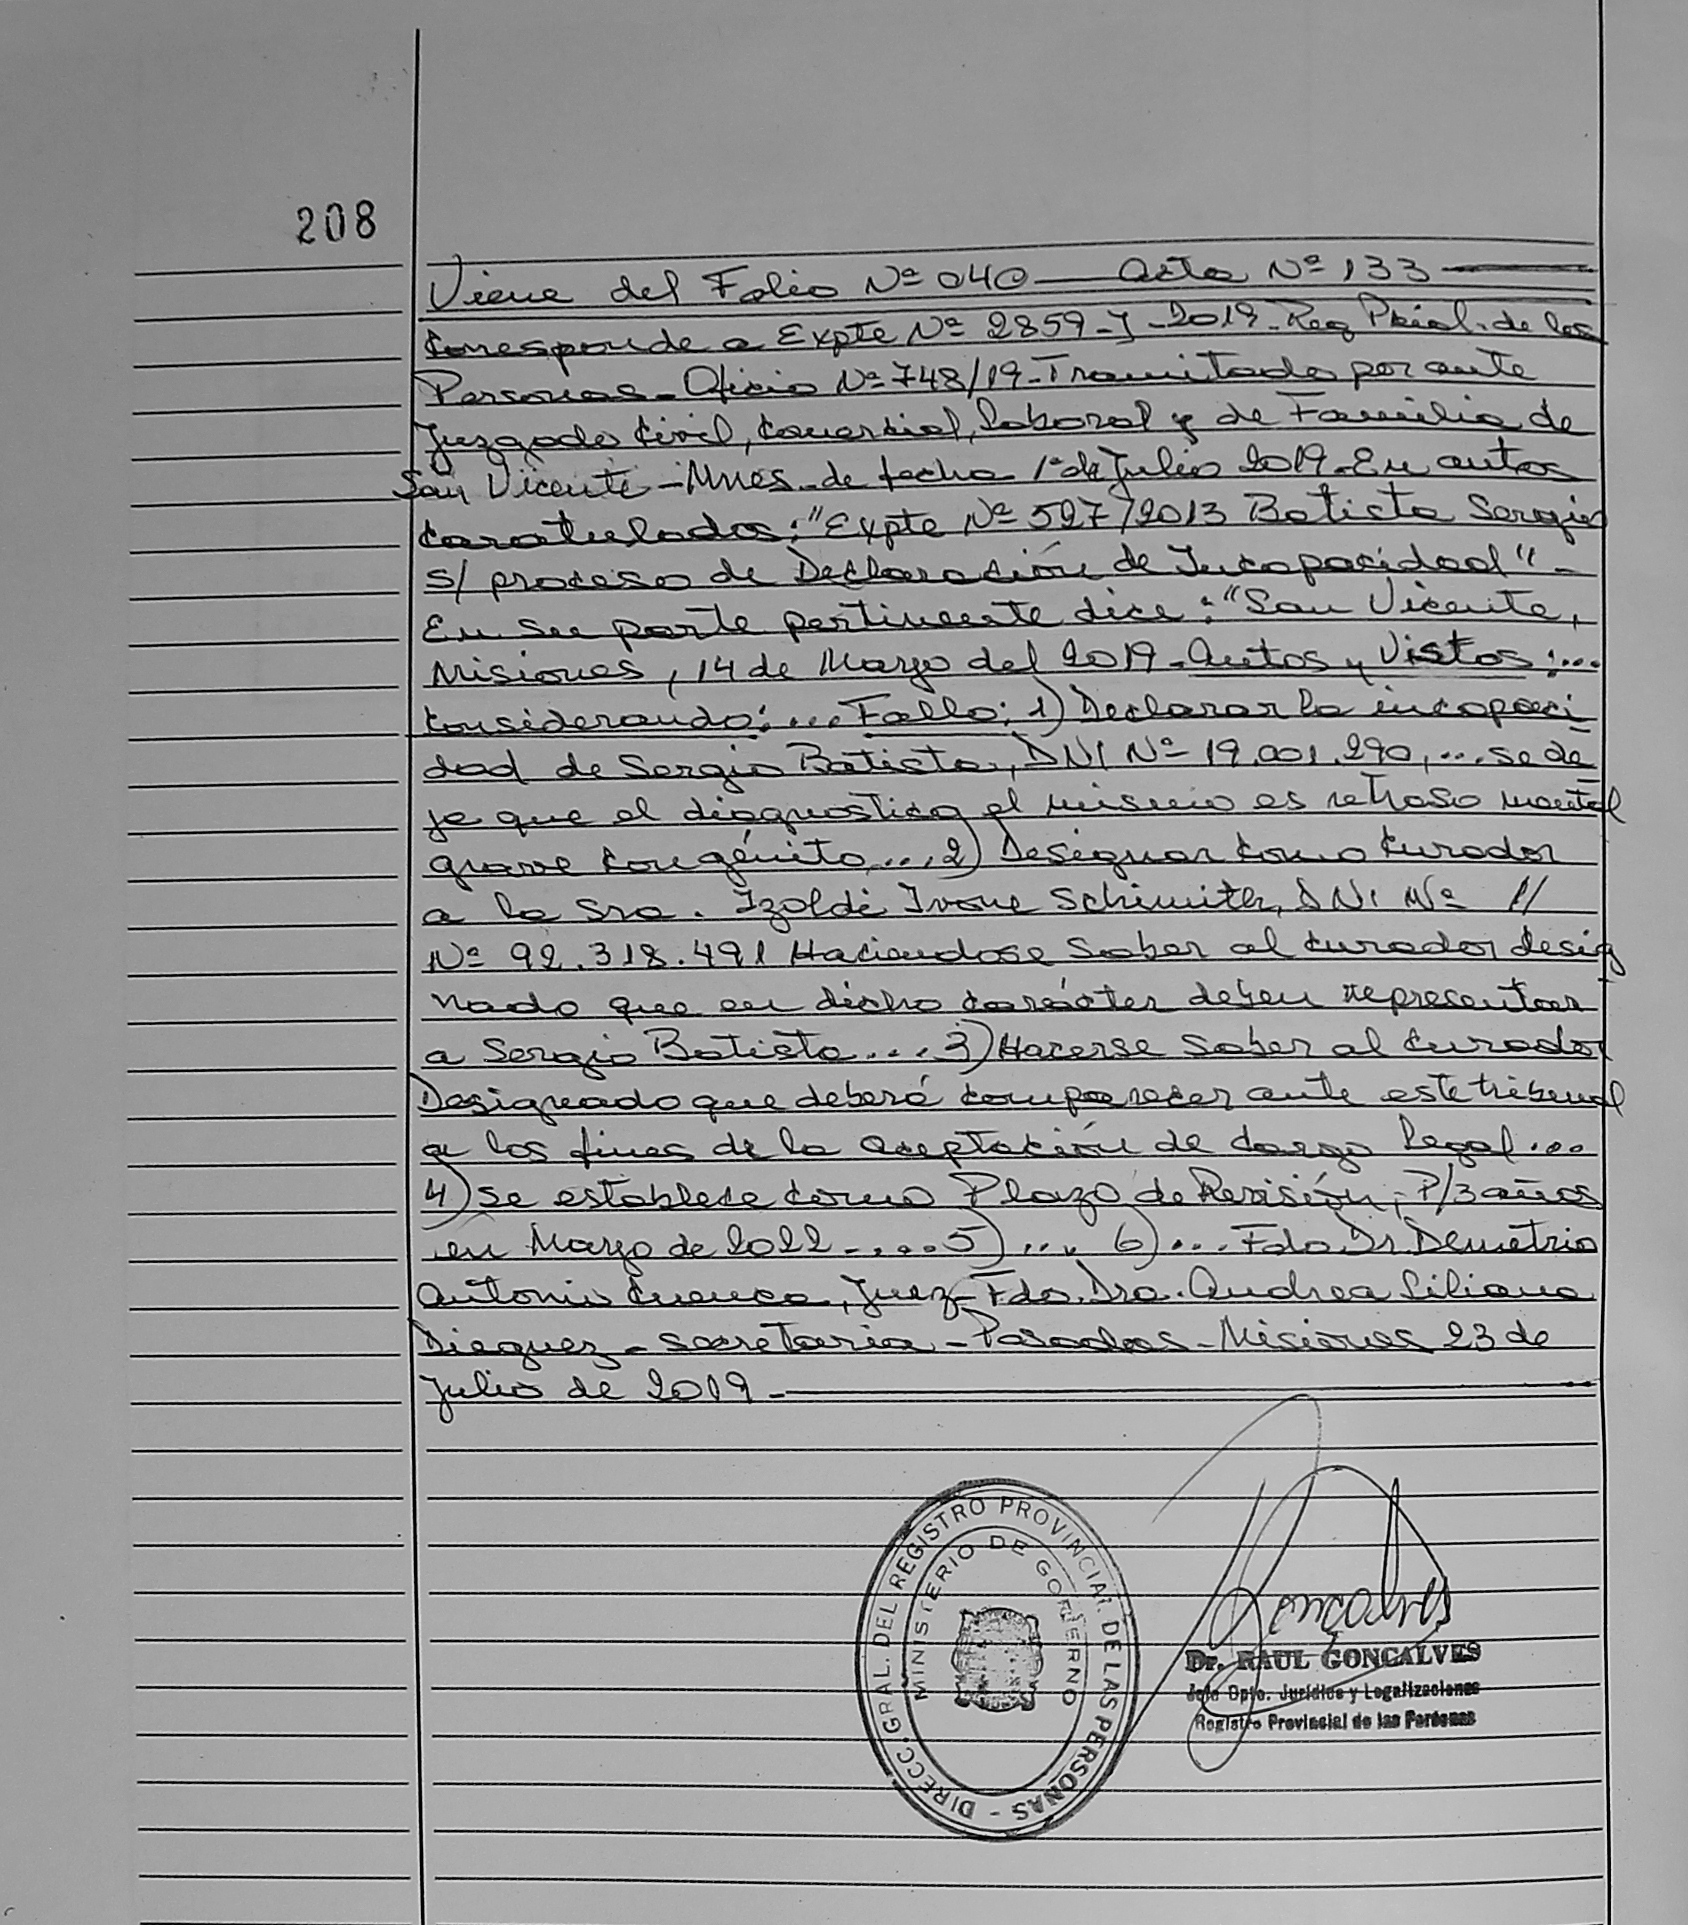 208
Viene del Folio Nº 040 — Acta Nº 133
Corresponde a Expte Nº 2859-J-2019-Reg Pcial. de las
Personas- Oficio Nº 748/19-Tramitado por ante
Juzgado Civil, Comercial, Laboral y de Familia de
San Vicente - Mnes- de fecha 1º de Julio 2019. En autos
caratulados: "Expte Nº 527/2013 Batista Sergio
s/ proceso de Declaración de Incapacidad" -
En su parte pertinente dice: "San Vicente,
Misiones, 14 de Marzo del 2019-Autos y Vistos:...
Considerando:... Fallo: 1) Declarar la incapaci
dad de Sergio Batista, DNI Nº 19.001.290,... se de
ja que el diagnostico el mismo es retraso mental
grave congénito... 2) Designar como Curador
a la Sra. Izolde Ivone Schimith, DNI Nº //
Nº 92.318.491 Haciendose saber al curador desig
nado que en dicho carácter deben representar
a Sergio Batista... 3) Hacerse saber al curador
Designado que deberá comparecer ante este tribunal
a los fines de la aceptación de cargo legal...
4) se establece como Plazo de Revisión, P/3 años
en Marzo de 2022 - .... 5) ... 6) ... Fdo Dr. Demetrio
Antonio Cuenca, Juez- Fdo. Dra. Andrea Liliana
Dieguez- secretaria - Posadas - Misiones 23 de
Julio de 2019 -
DIRECC. GRAL. DEL REGISTRO PROVINCIAL DE LAS PERSONAS -
MINISTERIO DE GOBIERNO
Dr. RAUL GONCALVES
Jefe Dpto. Jurídico y Legalizaciones
Registro Provincial de las Personas